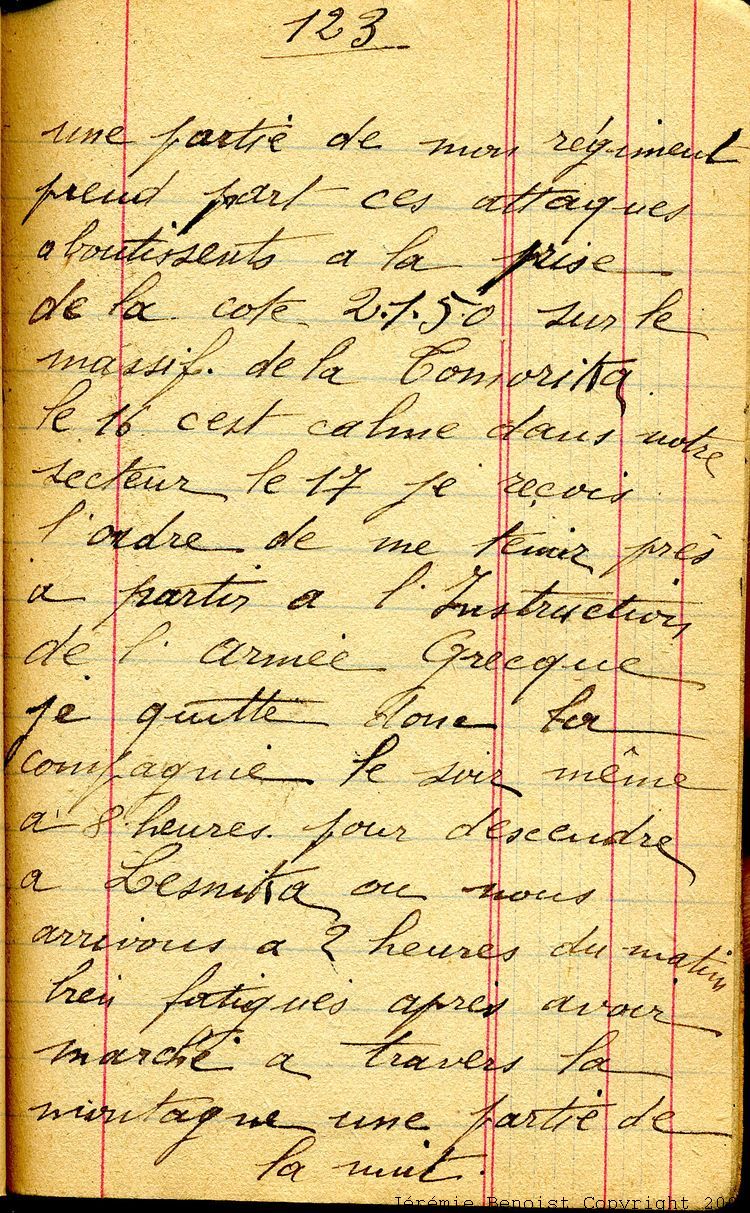 123
une partie de mon régiment
prend part ces attaques
aboutissents a la prise
de la cote 2.1.50 sur le
massif. de la Comorika
le 16 cest calme dans notre
secteur le 17 je reçois
l'ordre de me tenir près
a partir a l'Instruction
de l'armée Grecque
je quitte donc la
compagnie le soir même
a 8 heures. pour descendre
a Lesnika ou nous
arrivons a 2 heures du matin
bien fatigués après avoir
marché a travers la
montagne une partie de
la nuit.
Jérémie Benoist Copyright